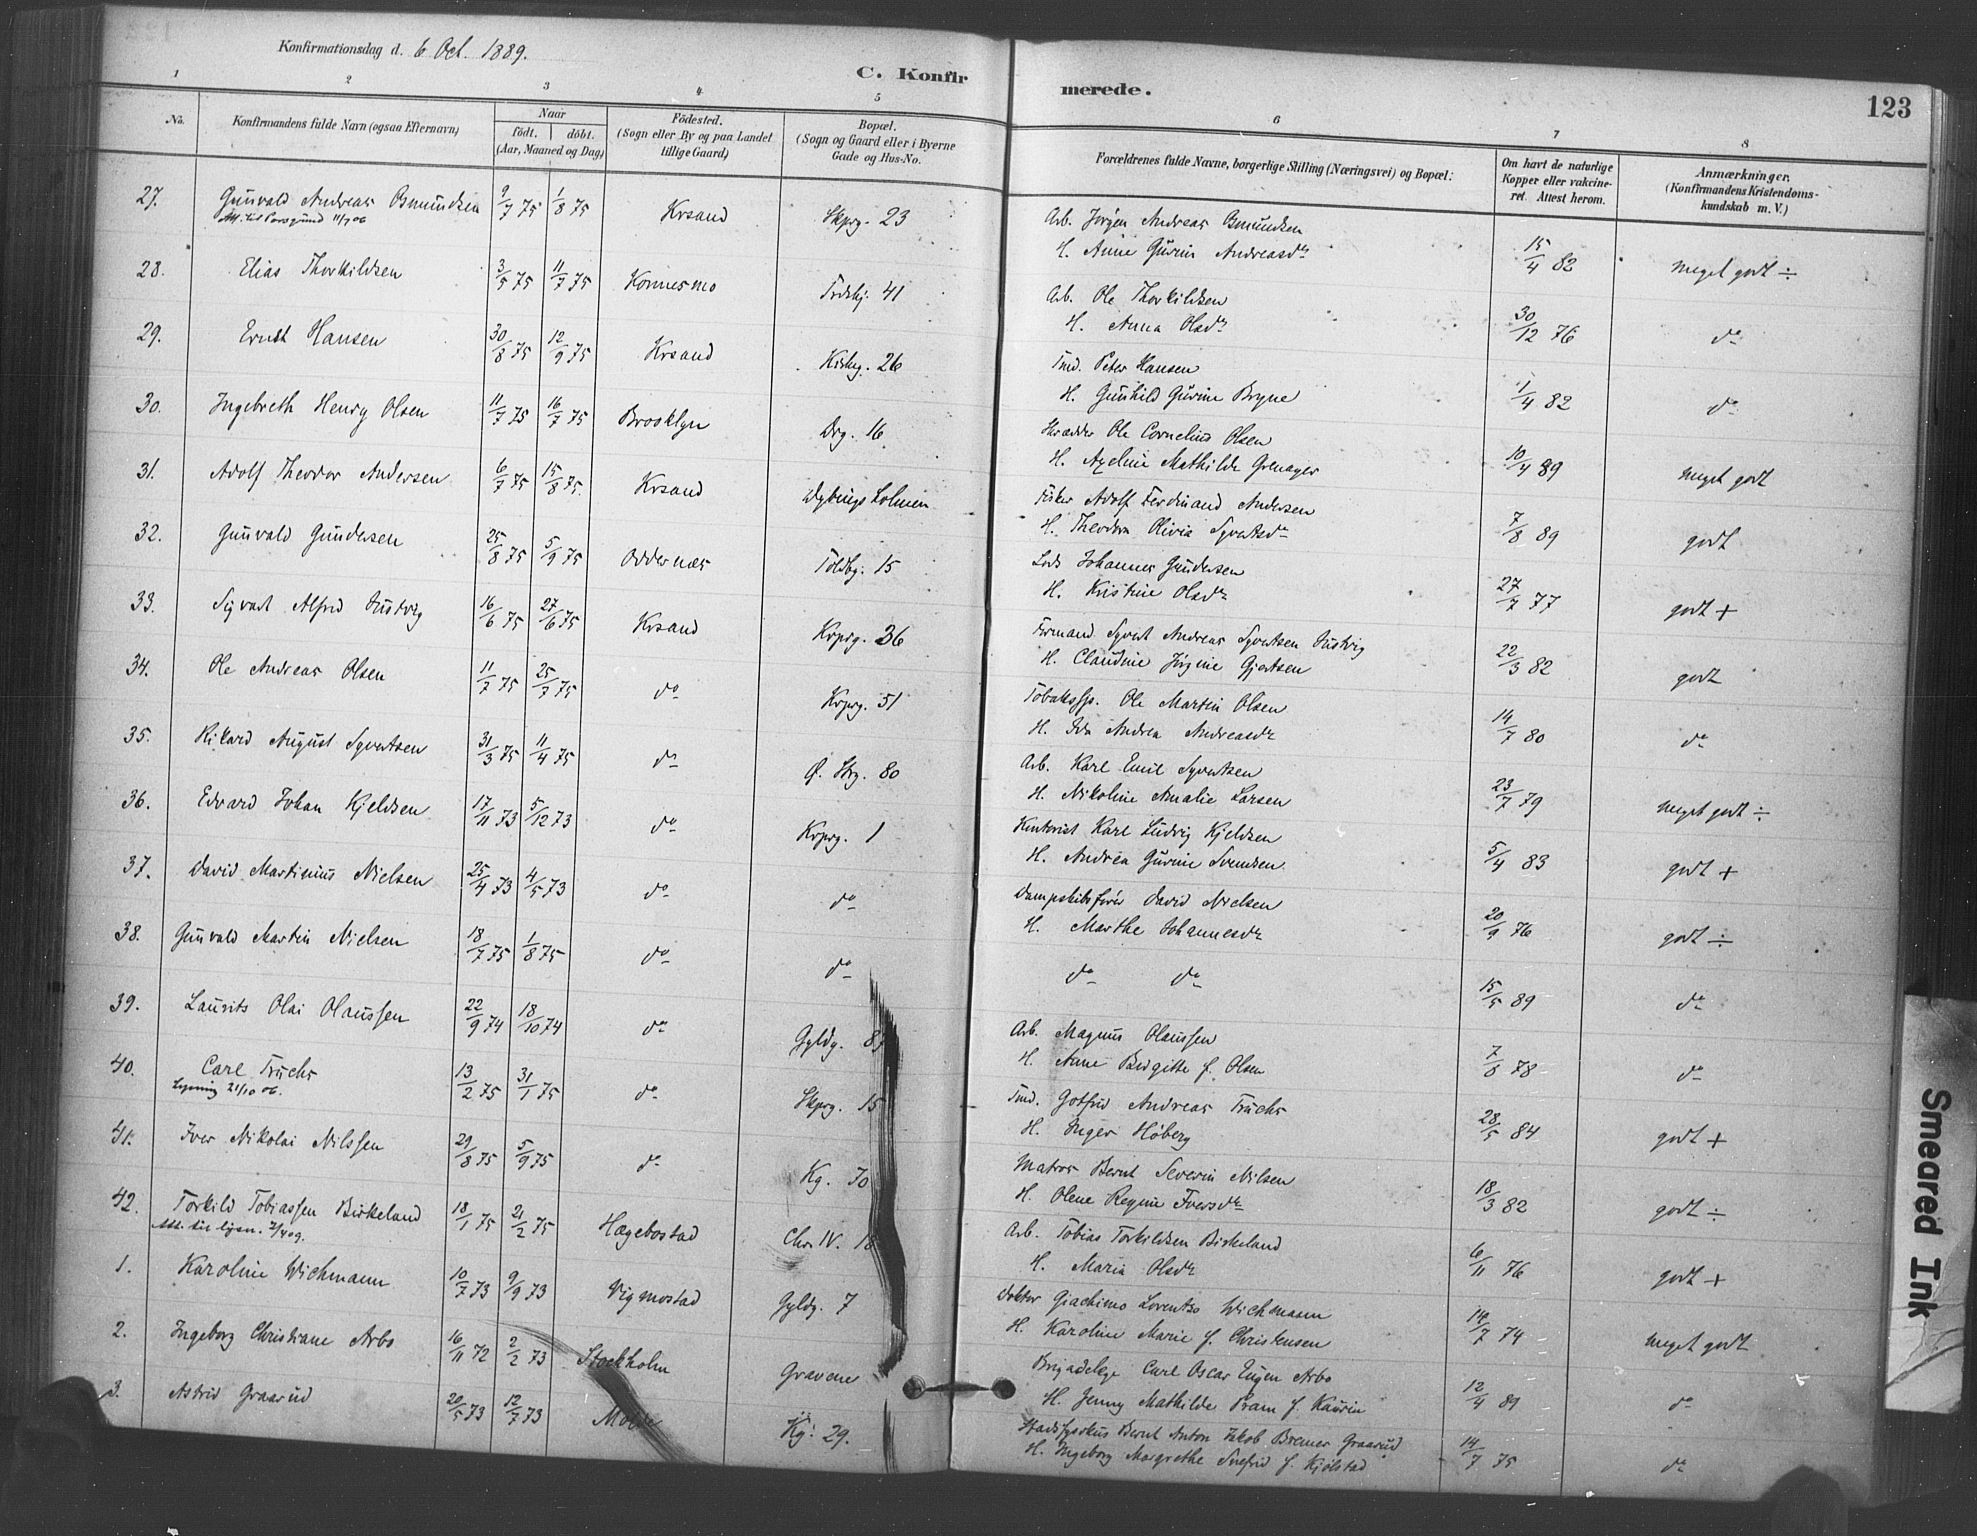 Konfirmationsdag d. 6 Oct. 1889.
C. Konfirmerede.
123
1 2 3 4 5 6 7 8
No.
Konfirmandens fulde Navn (ogsaa Efternavn)
Naar
födt. döbt.
(Aar, Maaned og Dag)
Födested.
(Sogn eller By og paa Landet tillige Gaard)
Bopæl.
(Sogn og Gaard eller i Byerne Gade og Hus-No.
Forældrenes fulde Navne, borgerlige Stilling (Næringsvei) og Bopæl.
Om havt de naturlige Kopper eller vakcineret. Attest herom.
Anmærkninger.
(Konfirmandens Kristendomskundskab m. V.)
27. Gunvald Andreas Osmundsen 9/7 75 1/8 75 Krsand Skprg. 23 Arb. Jörgen Andreas Osmundsen 15/4 82 meget godt ÷
Att. til Porsgrund 11/7 06
H. Anne Gurine Andreasdr
28. Elias Thorkildsen 3/5 75 11/7 75 Konnesmo 41 Arb. Ole Thorkildsen 30/12 76 do
H. Anna Olsdr
29. Ernst Hansen 30/8 75 12/9 75 Krsand Kirkeg. 26 Tmd. Peter Hansen 1/4 82 do
H. Gunhild Gurine Bryne
30. Ingebreth Henry Olsen 11/7 75 16/7 75 Brooklyn Drg. 16 Skrædder Ole Cornelius Olsen 10/4 89 meget godt
H. Axeline Mathilde Grenager
31. Adolf Theodor Andersen 6/7 75 15/8 75 Krsand Dybings Holmen Fisker Adolf Ferdinand Andersen 7/8 89 godt
H. Theodora Olivia Syvertsdr
32. Gunvald Gundersen 25/8 75 5/9 75 Oddernæs Toldbg. 15 Lods Johannes Gundersen 27/7 77 godt +
H. Kristine Olsdr
33. Sigvart Alfred Justvig 16/6 75 27/6 75 Krsand Krprg. 36 Formand Syvert Andreas Syvertsen Justvig 22/3 82 godt
H. Claudine Jörgine Gjertsen
34. Ole Andreas Olsen 11/7 75 25/7 75 do Krprg. 51 Tobakssp. Ole Martin Olsen 14/7 80 do
H. Ida Andrea Andreasdr
35. Rikard August Syvertsen 31/3 75 11/4 75 do Ø. Strg. 80 Arb. Karl Emil Syvertsen 23/7 79 meget godt ÷
H. Nikoline Amalie Larsen
36. Edvard Johan Kjeldsen 17/11 73 5/12 73 do Krprg. 1 Kontorist Karl Ludvig Kjeldsen 5/4 83 godt +
H. Andrea Gurine Svendsen
37. David Martinius Nielsen 25/4 73 4/5 73 do do Dampskibsförer David Nielsen 20/9 76 godt ÷
H. Marthe Johannesdr
38. Gunvald Martin Nielsen 18/7 75 1/8 75 do do do do 15/5 89 do
39. Laurits Olai Olaussen 22/9 74 18/10 74 do Gyldg. 87 Arb. Magnus Olaussen 7/8 78 do
H. Anne Birgitte f. Olsen
40. Carl Fuchs 13/2 75 31/1 75 do Skprg. 15 Tmd. Gotfred Andreas Fuchs 28/5 84 godt +
Lysning 21/10 06.
H. Inger Höberg
41. Iver Nikolai Nilssen 29/8 75 5/9 75 do Kg. 70 Matros Bernt Severin Nilsen 18/3 82 godt ÷
H. Olene Regine Iversdr
42. Torkild Tobiassen Birkeland 18/1 75 21/2 75 Hægebostad Chr. IV. 18 Arb. Tobias Torkildsen Birkeland 6/11 76 godt +
Att. til lysn. 2/4 09.
H. Maria Olsdr
1. Karoline Wichmann 10/7 73 9/9 73 Vigmostad Gyldg. 7 Doktor Giachimo Lorentso Wichmann 14/7 74 meget godt
H. Karoline Marie f. Christensen
2. Ingeborg Christiane Arbo 16/11 72 2/2 73 Stockholm Gravene Brigadelge Carl Oscar Eugen Arbo 12/4 89 do
H. Jenny Mathilde Pram f. Kaurin
3. Astrid Graarud 20/5 73 12/7 73 Molde Kg. 29. Stadsfysikus Bernt Anton Jakob Bremer Graarud 14/7 75 do
H. Ingeborg Margrethe f. Kjölstad
Smeared Ink